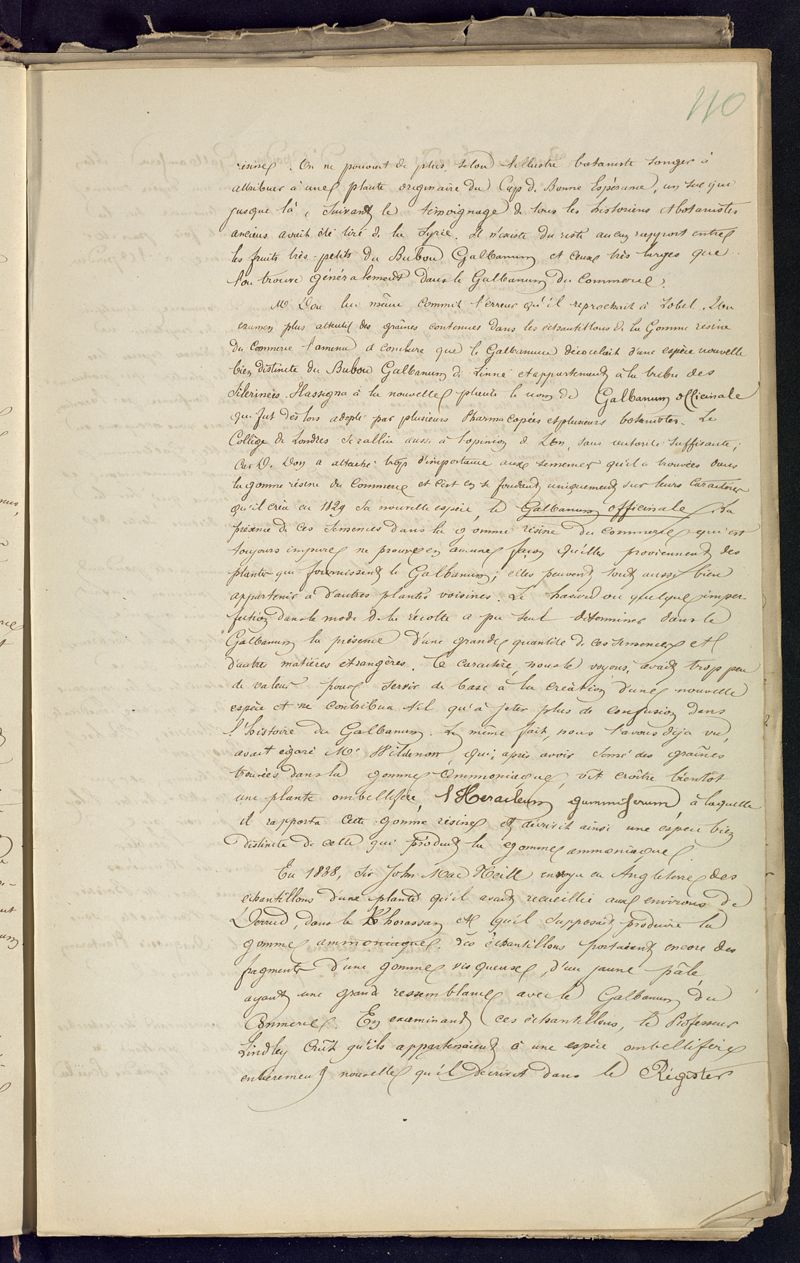 110
résine. On ne pouvait de plus, selon l'illustre botaniste songer à
attribuer à une plante originaire du Cap de Bonne Espérance, un suc qui
jusque là, suivant le témoignage de tous les historiens et botanistes
anciens avait été tiré de la Syrie. Il n'existe du reste aucun rapport entre
les fruits très-petits du Bubon Galbanum et ceux très larges que
l'on trouve généralement dans le Galbanum du Commerce.
Mr Don lui même commit l'erreur qu'il reprochait à Lobel. Un
examen plus attentif des graines contenues dans les échantillons de la Gomme résine
du Commerce l'amena à conclure que le Galbanum découlait d'une espèce nouvelle
bien distincte du Bubon Galbanum de Linné et appartenant à la tribu des
Silerinées. Il assigna à la nouvelle plante le nom de Galbanum officinale
qui fut dès lors adopté par plusieurs Pharmacopées et plusieurs botanistes. Le
Collège de Londres se rallia aussi à l'opinion de Don, sans autorité suffisante;
car D. Don a attaché trop d'importance aux semences qu'il a trouvées dans
la gomme résine du Commerce et c'est en se fondant uniquement sur leurs caractères
qu'il créa en 1829 sa nouvelle espèce, le Galbanum officinale. La
présence de ces semences dans la gomme résine du commerce qui est
toujours impure ne prouve en aucune façon qu'elles proviennent des
plantes qui fournissent le Galbanum; elles peuvent tout aussi bien
appartenir à d'autres plantes voisines. Le hasard ou quelque imper
fection dans le mode de la récolte a pu seul déterminer dans le
Galbanum la présence d'une grande quantité de ces semences et
d'autres matières étrangères. Ce caractère, nous le voyons, avait trop peu
de valeur pour servir de base à la création d'une nouvelle
espèce et ne contribua t-il qu'à jeter plus de confusion dans
l'histoire du Galbanum. Le même fait, nous l'avons déjà vu,
avait égaré Mr Wildenow, qui, après avoir semé des graines
trouvées dans la gomme ammoniaque, vit croître bientôt
une plante ombellifère, l'Heracleum gummiferum à laquelle
il rapporta cette gomme résine et décrivit ainsi une espèce bien
distincte de celle qui produit la gomme ammoniaque.
En 1838, Sir John Mac Neill envoya en Angleterre des
échantillons d'une plante qu'il avait recueillie aux environs de
Durrud, dans le Khorassan et qu'il supposait produire la
gomme ammoniaque. Ces échantillons portaient encore des
fragments d'une gomme visqueuse, d'un jaune pâle,
ayant une grande ressemblance avec le Galbanum du
Commerce. En examinant ces échantillons, le Professeur
Lindley crût qu'ils appartenaient à une espèce ombellifère
entièrement nouvelle qu'il décrivit dans le Register